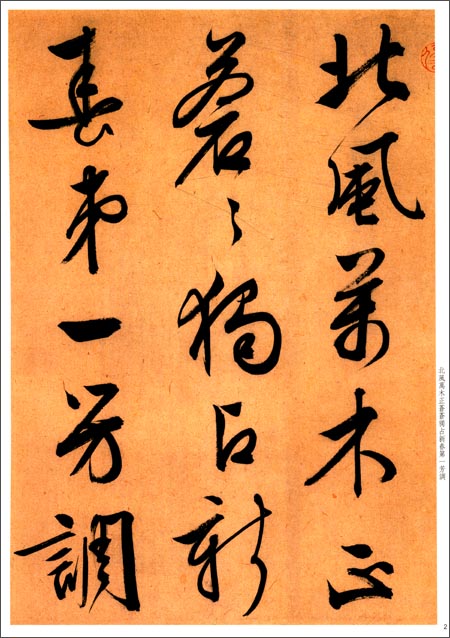 北風萬木正
蒼〻獨占新
春第一芳調
北風萬木正蒼蒼獨占新春第一芳調
2